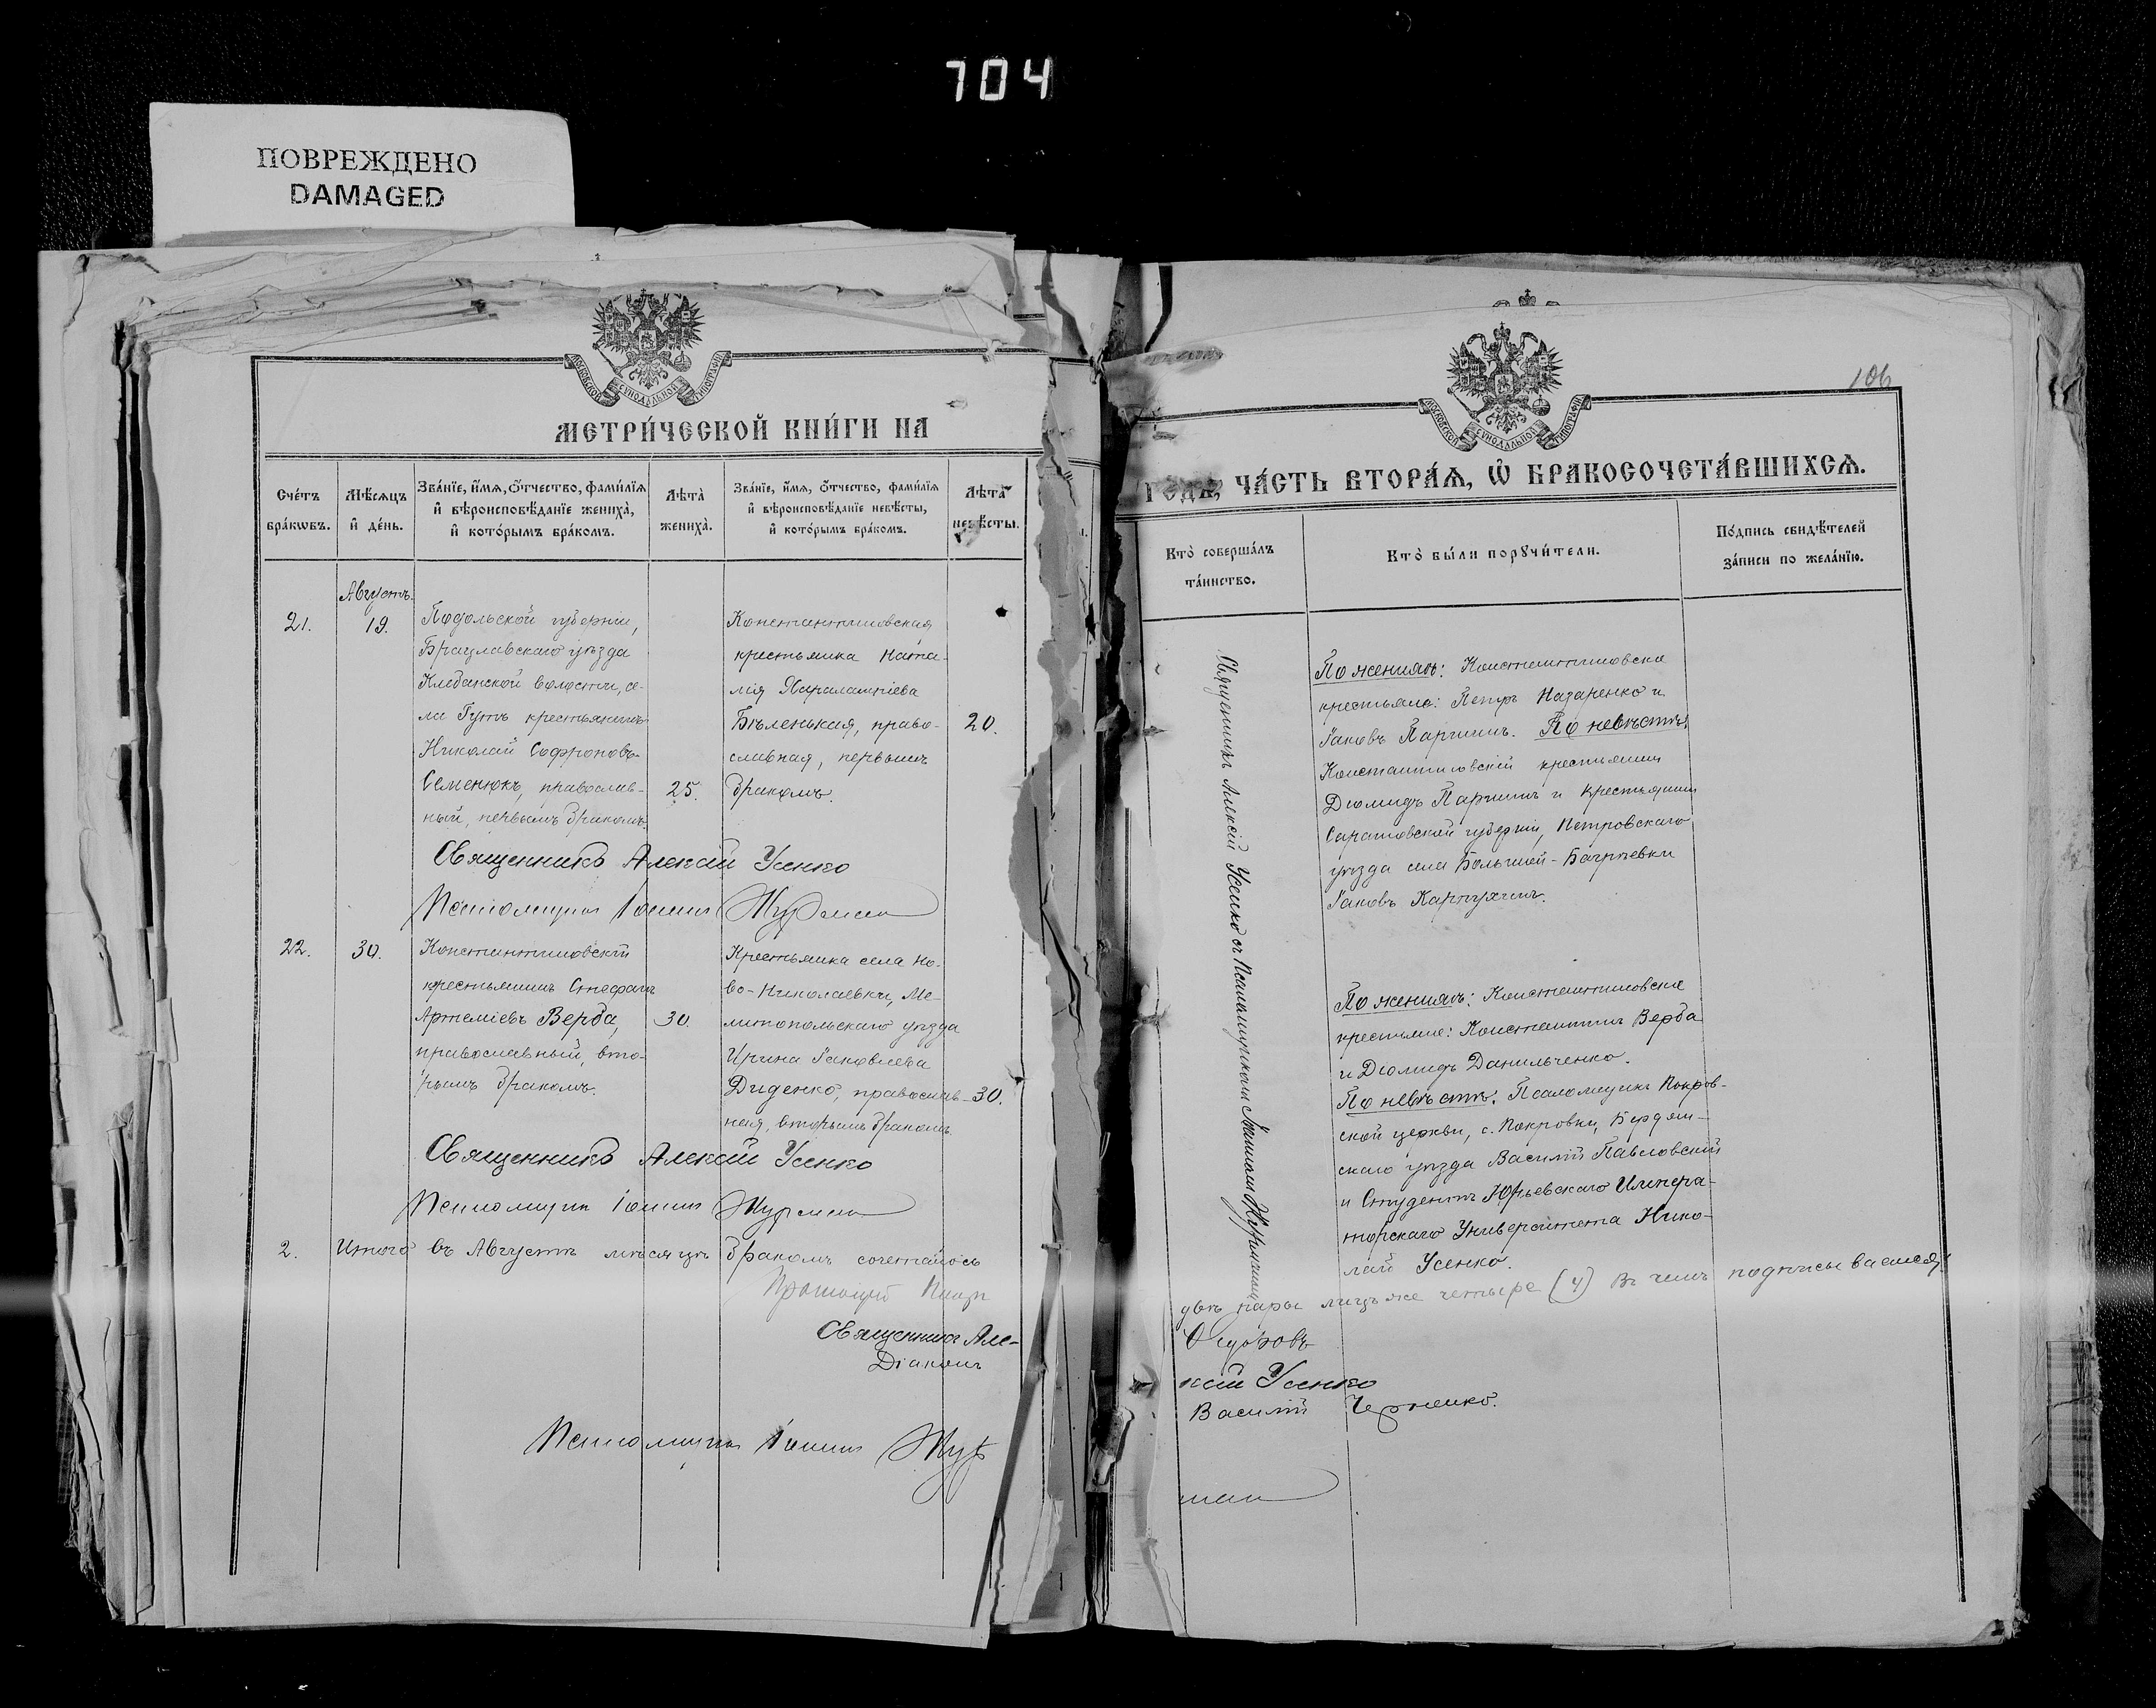 704
ПОВРЕЖДЕНО
DAMAGED
МОСКОВСКОЙ СѴНОДАЛЬНОЙ ТИПОГРАФІИ
МЕТРИ́ЧЕСКОЙ КНИ́ГИ НА
Сче́тъ бра́кѡвъ.
Мѣ́сяцъ и҆ де́нь.
Зва́нїе, и҆́мѧ, ѻ҆́тчество, фами́лїѧ
и҆ вѣроисповѣ́данїе жениха̀,
и҆ кото́рымъ бра́комъ.
Лѣта̀ жениха̀.
Зва́нїе, и҆́мѧ, ѻ҆́тчество, фами́лїѧ
и҆ вѣроисповѣ́данїе невѣ́сты,
и҆ кото́рымъ бра́комъ.
Лѣта̀ невѣ́сты.
21.
Августъ.
19.
Подольской губерніи,
Брацлавскаго уѣзда
Клебанской волости, се-
ла Гутъ крестьянинъ
Николай Софроновъ
Семенюкъ, православ-
ный, первымъ бракомъ.
25.
Константиновская
крестьянка Ната-
лія Харалампіева
Бѣленькая, право-
славная, первымъ
бракомъ.
20.
Священникъ Алексій Усенко
Псаломщикъ Іоаннъ Журман
22.
30.
Константиновскій
крестьянинъ Стефанъ
Артеміевъ Верба,
православный, вто-
рымъ бракомъ.
30.
Крестьянка села Но-
во-Николаевки, Ме-
литопольскаго уѣзда
Ирина Іаковлева
Диденко, православ-
ная, вторымъ бракомъ.
30.
Священникъ Алексій Усенко
Псаломщикъ Іоаннъ Журман
2.
Итого въ Августѣ мѣсяцѣ бракомъ сочеталось
Священникъ Але-
Діаконъ
Псаломщикъ Іоаннъ Жур
106
МОСКОВСКОЙ СѴНОДАЛЬНОЙ ТИПОГРАФІИ
ГОДЪ, ЧА́СТЬ ВТОРА́Ѧ, Ѡ҆ БРАКОСОЧЕТА́ВШИХСѦ.
Кто̀ соверша́лъ та́инство.
Кто̀ бы́ли порꙋчи́тели.
По́дпись свидѣ́телей
за́писи по жела́нїю.
Священникъ Алексій Усенко съ Псаломщикомъ Іоанномъ Журманомъ
По женихѣ: Константиновскіе
крестьяне: Петръ Назаренко и
Іаковъ Паршинъ. По невѣстѣ:
Константиновскій крестьянинъ
Діомидъ Паршинъ и крестьянинъ
Саратовской губерніи, Петровскаго
уѣзда села Большой-Багрѣевки
Іаковъ Карпухинъ.
По женихѣ: Константиновскіе
крестьяне: Константинъ Верба
и Діомидъ Данильченко.
По невѣстѣ: Псаломщикъ Покров-
ской церкви, с. Покровки, Бердян-
скаго уѣзда Василій Павловскій
и Студентъ Юрьевскаго Импера-
торскаго Университета Нико-
лай Усенко.
двѣ пары лицъ же четыре (4) Въ чемъ подписываемся:
ксій Усенко
Василій Черненко.
ман